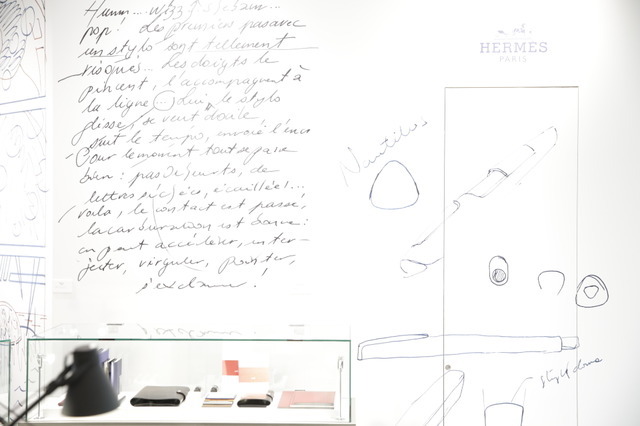 pop! Les premiers pas avec
un stylo sont tellement
risqués... Les doigts le
pincent, l'accompagnent à
la ligne ... Lui, le stylo
glisse, se veut docile,
suit le tempo, envoie l'encre
Pour le moment tout se passe
bien : pas de
lettres
voilà, le contact est passé,
la carburation est bonne :
on peut accélérer, inter-
jecter, virguler, pointer,
s'exclamer !
HERMÈS
PARIS
Nautilus